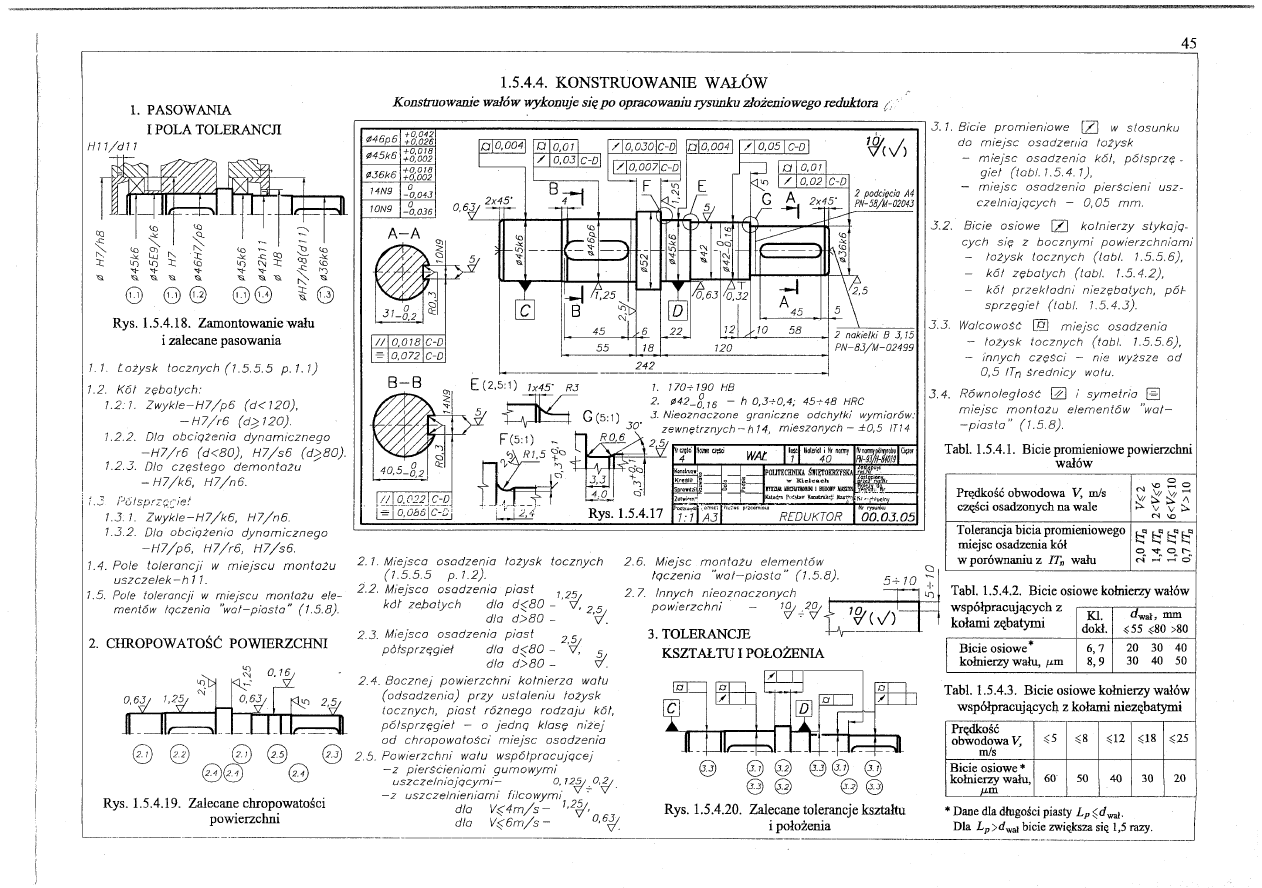 45
1.5.4.4. KONSTRUOWANIE WAŁÓW
Konstruowanie wałów wykonuje się po opracowaniu rysunku złożeniowego reduktora
1. PASOWANIA
I POLA TOLERANCJI
H11/d11
ø H7/h8
ø45k6
ø45E9/k6
ø H7
ø46H7/p6
ø45k6
ø42h11
ø H8
øH7/h8(d11)
ø36k6
1.1 1.1 1.2 1.1 1.4 1.3
Rys. 1.5.4.18. Zamontowanie wału
i zalecane pasowania
1.1. Łożysk tocznych (1.5.5.5 p.1.1)
1.2. Kół zębatych:
1.2.1. Zwykle–H7/p6 (d<120),
–H7/r6 (d≥120).
1.2.2. Dla obciążenia dynamicznego
–H7/r6 (d<80), H7/s6 (d≥80).
1.2.3. Dla częstego demontażu
–H7/k6, H7/n6.
1.3 Półsprzęgieł
1.3.1. Zwykle–H7/k6, H7/n6.
1.3.2. Dla obciążenia dynamicznego
–H7/p6, H7/r6, H7/s6.
1.4. Pole tolerancji w miejscu montażu
uszczelek–h11.
1.5. Pole tolerancji w miejscu montażu ele-
mentów łączenia "wał–piasta" (1.5.8).
2. CHROPOWATOŚĆ POWIERZCHNI
0,63 1,25 2,5 1,25 0,16 0,63 5 2,5
2.1 2.2 2.1 2.5 2.3
2.4 2.4 2.4
Rys. 1.5.4.19. Zalecane chropowatości
powierzchni
ø46p6 +0,042 +0,026
ø45k6 +0,018 +0,002
ø36k6 +0,018 +0,002
14N9 0 –0,043
10N9 0 –0,036
0,004
0,01
0,03 C–D
0,030 C–D
0,007 C–D
0,004
0,05 C–D
0,01
0,02 C–D
10 (√)
2 podcięcia A4
PN–58/M–02043
0,63 2x45° B 4 F 1,25 E 5 5 G A 2x45°
ø45k6 ø46p6 ø52 ø45k6 ø42 ø42–0,16 ø36k6
C B 1,25 2,5 D 0,63 0,32 A 2,5
45 6 22 12 10 58 45 5
55 18 120
242
2 nakiełki B 3,15
PN–83/M–02499
A–A
10N9
5
R0,3
31–0,2
// 0,018 C–D
= 0,072 C–D
B–B
14N9
5
R0,3
40,5–0,2
// 0,022 C–D
= 0,086 C–D
E (2,5:1) 1x45° R3
F (5:1)
2,5 R1,5
0,3+0,1
2,4
G (5:1) 30°
R0,6 2,5
3,3
4,0
0,3+0,1
1. 170÷190 HB
2. ø42–0,16 – h 0,3÷0,4; 45÷48 HRC
3. Nieoznaczone graniczne odchyłki wymiarów:
zewnętrznych–h14, mieszanych – ±0,5 IT14
Nr części Nazwa części Ilość Materiał i Nr normy Ciężar
4 WAŁ 1 40
POLITECHNIKA ŚWIĘTOKRZYSKA
w Kielcach
1:1 A3 REDUKTOR 00.03.05
Rys. 1.5.4.17
2.1. Miejsca osadzenia łożysk tocznych
(1.5.5.5 p.1.2).
2.2. Miejsca osadzenia piast
kół zębatych dla d≤80 – 1,25,
dla d>80 – 2,5.
2.3. Miejsca osadzenia piast
półsprzęgieł dla d≤80 – 2,5,
dla d>80 – 5.
2.4. Bocznej powierzchni kołnierza wału
(odsadzenia) przy ustaleniu łożysk
tocznych, piast różnego rodzaju kół,
półsprzęgieł – o jedną klasę niżej
od chropowatości miejsc osadzenia
2.5. Powierzchni wału współpracującej
–z pierścieniami gumowymi
uszczelniającymi– 0,125 ÷ 0,2.
–z uszczelnieniami filcowymi
dla V≤4m/s – 1,25,
dla V≤6m/s – 0,63.
2.6. Miejsc montażu elementów
łączenia "wał–piasta" (1.5.8).
2.7. Innych nieoznaczonych
powierzchni – 10 ÷ 20
5÷10
5÷10
10 (√)
3. TOLERANCJE
KSZTAŁTU I POŁOŻENIA
C D
3.3 3.1 3.2 3.3 3.1 3.1
3.3 3.2 3.2 3.3
Rys. 1.5.4.20. Zalecane tolerancje kształtu
i położenia
3.1. Bicie promieniowe w stosunku
do miejsc osadzenia łożysk
– miejsc osadzenia kół, półsprzę-
gieł (tabl.1.5.4.1),
– miejsc osadzenia pierścieni usz-
czelniających – 0,05 mm.
3.2. Bicie osiowe kołnierzy stykają-
cych się z bocznymi powierzchniami
– łożysk tocznych (tabl. 1.5.5.6),
– kół zębatych (tabl. 1.5.4.2),
– kół przekładni niezębatych, pół-
sprzęgieł (tabl. 1.5.4.3).
3.3. Walcowość miejsc osadzenia
– łożysk tocznych (tabl. 1.5.5.6),
– innych części – nie wyższe od
0,5 ITn średnicy wału.
3.4. Równoległość i symetria
miejsc montażu elementów "wał–
–piasta" (1.5.8).
Tabl. 1.5.4.1. Bicie promieniowe powierzchni
wałów
Prędkość obwodowa V, m/s
części osadzonych na wale
V≤2 2<V≤6 6<V≤10 V>10
Tolerancja bicia promieniowego
miejsc osadzenia kół
w porównaniu z ITn wału
2,0 ITn 1,4 ITn 1,0 ITn 0,7 ITn
Tabl. 1.5.4.2. Bicie osiowe kołnierzy wałów
współpracujących z
kołami zębatymi
Kl. dokł. dwał, mm
≤55 ≤80 >80
Bicie osiowe*
kołnierzy wału, μm
6, 7 20 30 40
8, 9 30 40 50
Tabl. 1.5.4.3. Bicie osiowe kołnierzy wałów
współpracujących z kołami niezębatymi
Prędkość
obwodowa V,
m/s
≤5 ≤8 ≤12 ≤18 ≤25
Bicie osiowe*
kołnierzy wału,
μm
60 50 40 30 20
* Dane dla długości piasty Lp≤dwał.
Dla Lp>dwał bicie zwiększa się 1,5 razy.